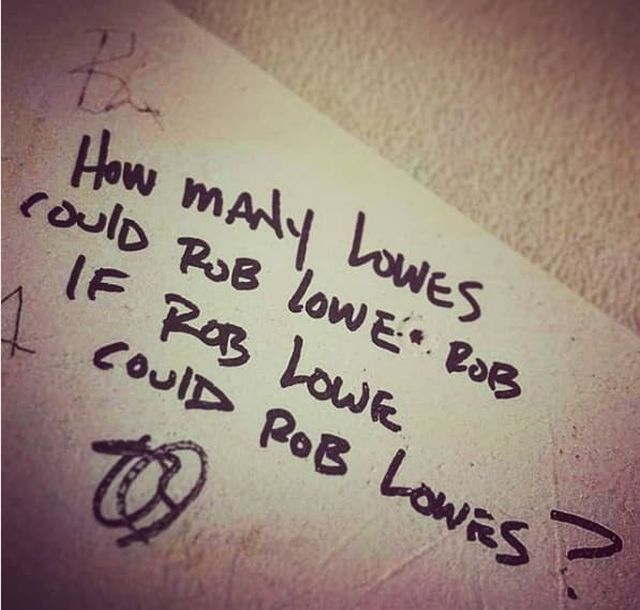 HOW MANY LOWES
COULD ROB LOWE ROB
IF ROB LOWE
COULD ROB LOWES?